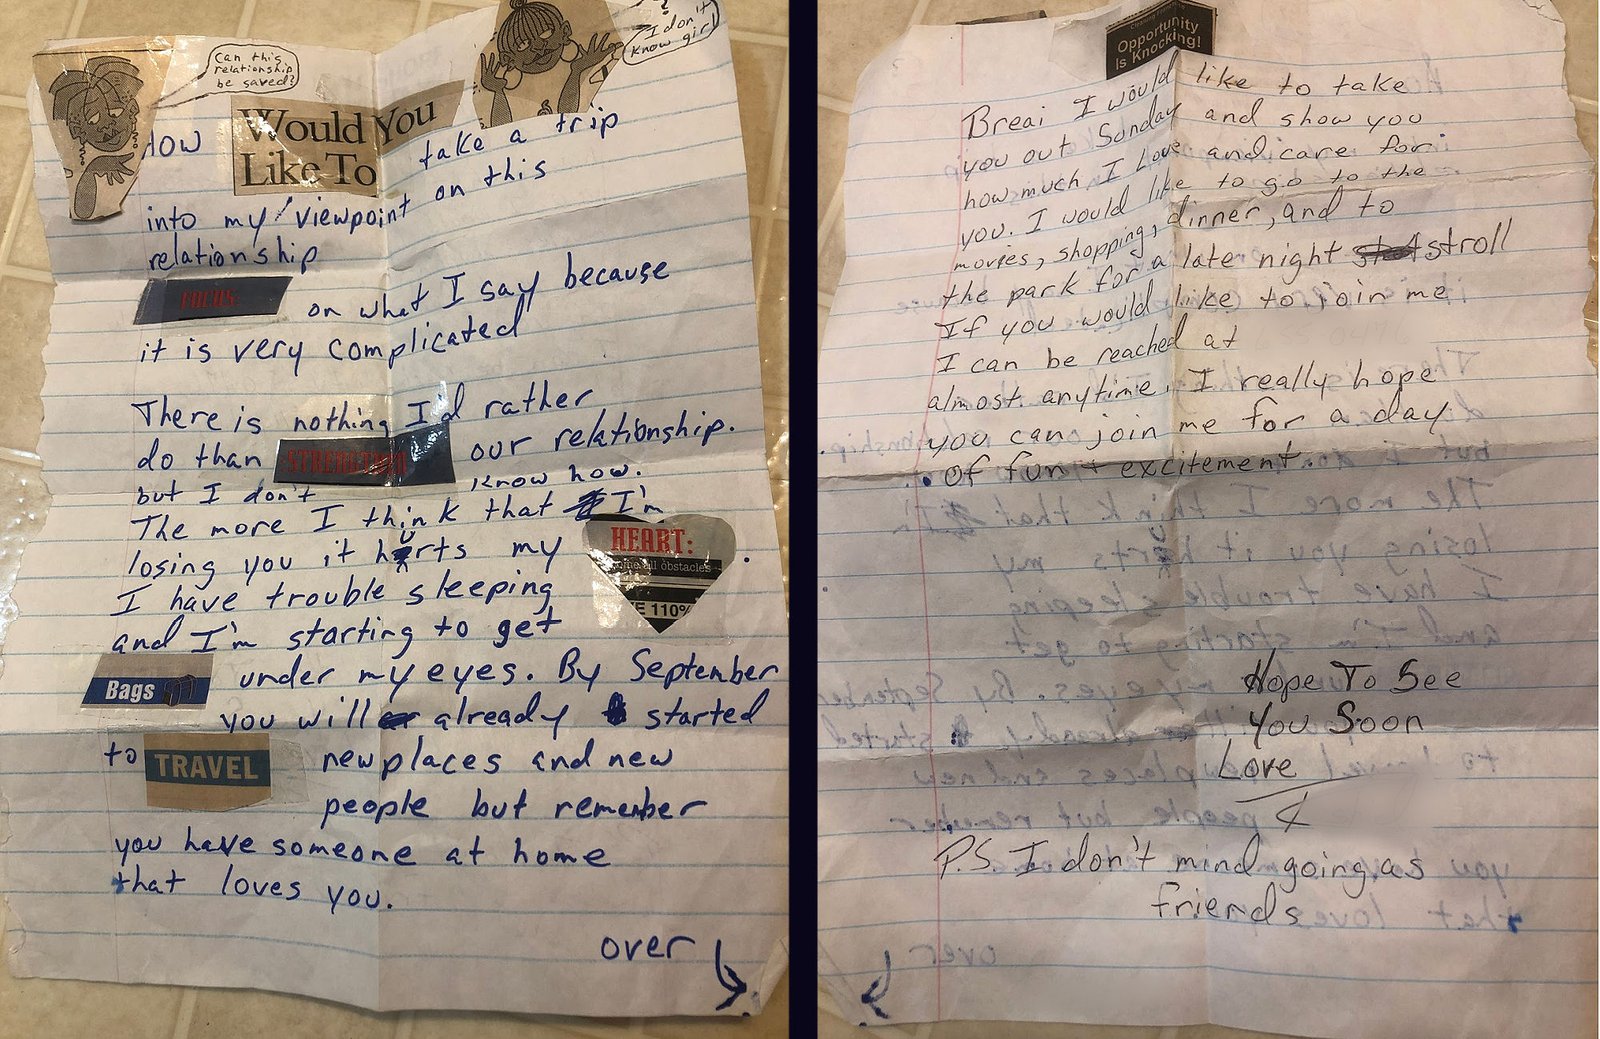 Can this
relationship
be saved?
?
I don't
know girl
How Would You
Like To take a trip
into my viewpoint on this
relationship
FOCUS: on what I say because
it is very complicated
There is nothing I'd rather
do than STRENGTHEN our relationship.
but I don't know how.
The more I think that I'm
losing you it hurts my HEART: .
all obstacles
110%
I have trouble sleeping
and I'm starting to get
Bags under my eyes. By September
you will already started
to TRAVEL new places and new
people but remember
you have someone at home
that loves you.
over
Opportunity
Is Knocking!
Breai I would like to take
you out Sunday and show you
how much I Love and care for
you. I would like to go to the
movies, shopping, dinner, and to
the park for a late night stroll
If you would like to join me
I can be reached at
almost anytime. I really hope
you can join me for a day
of fun + excitement.
Hope To See
You Soon
Love
P.S. I don't mind going as
friends